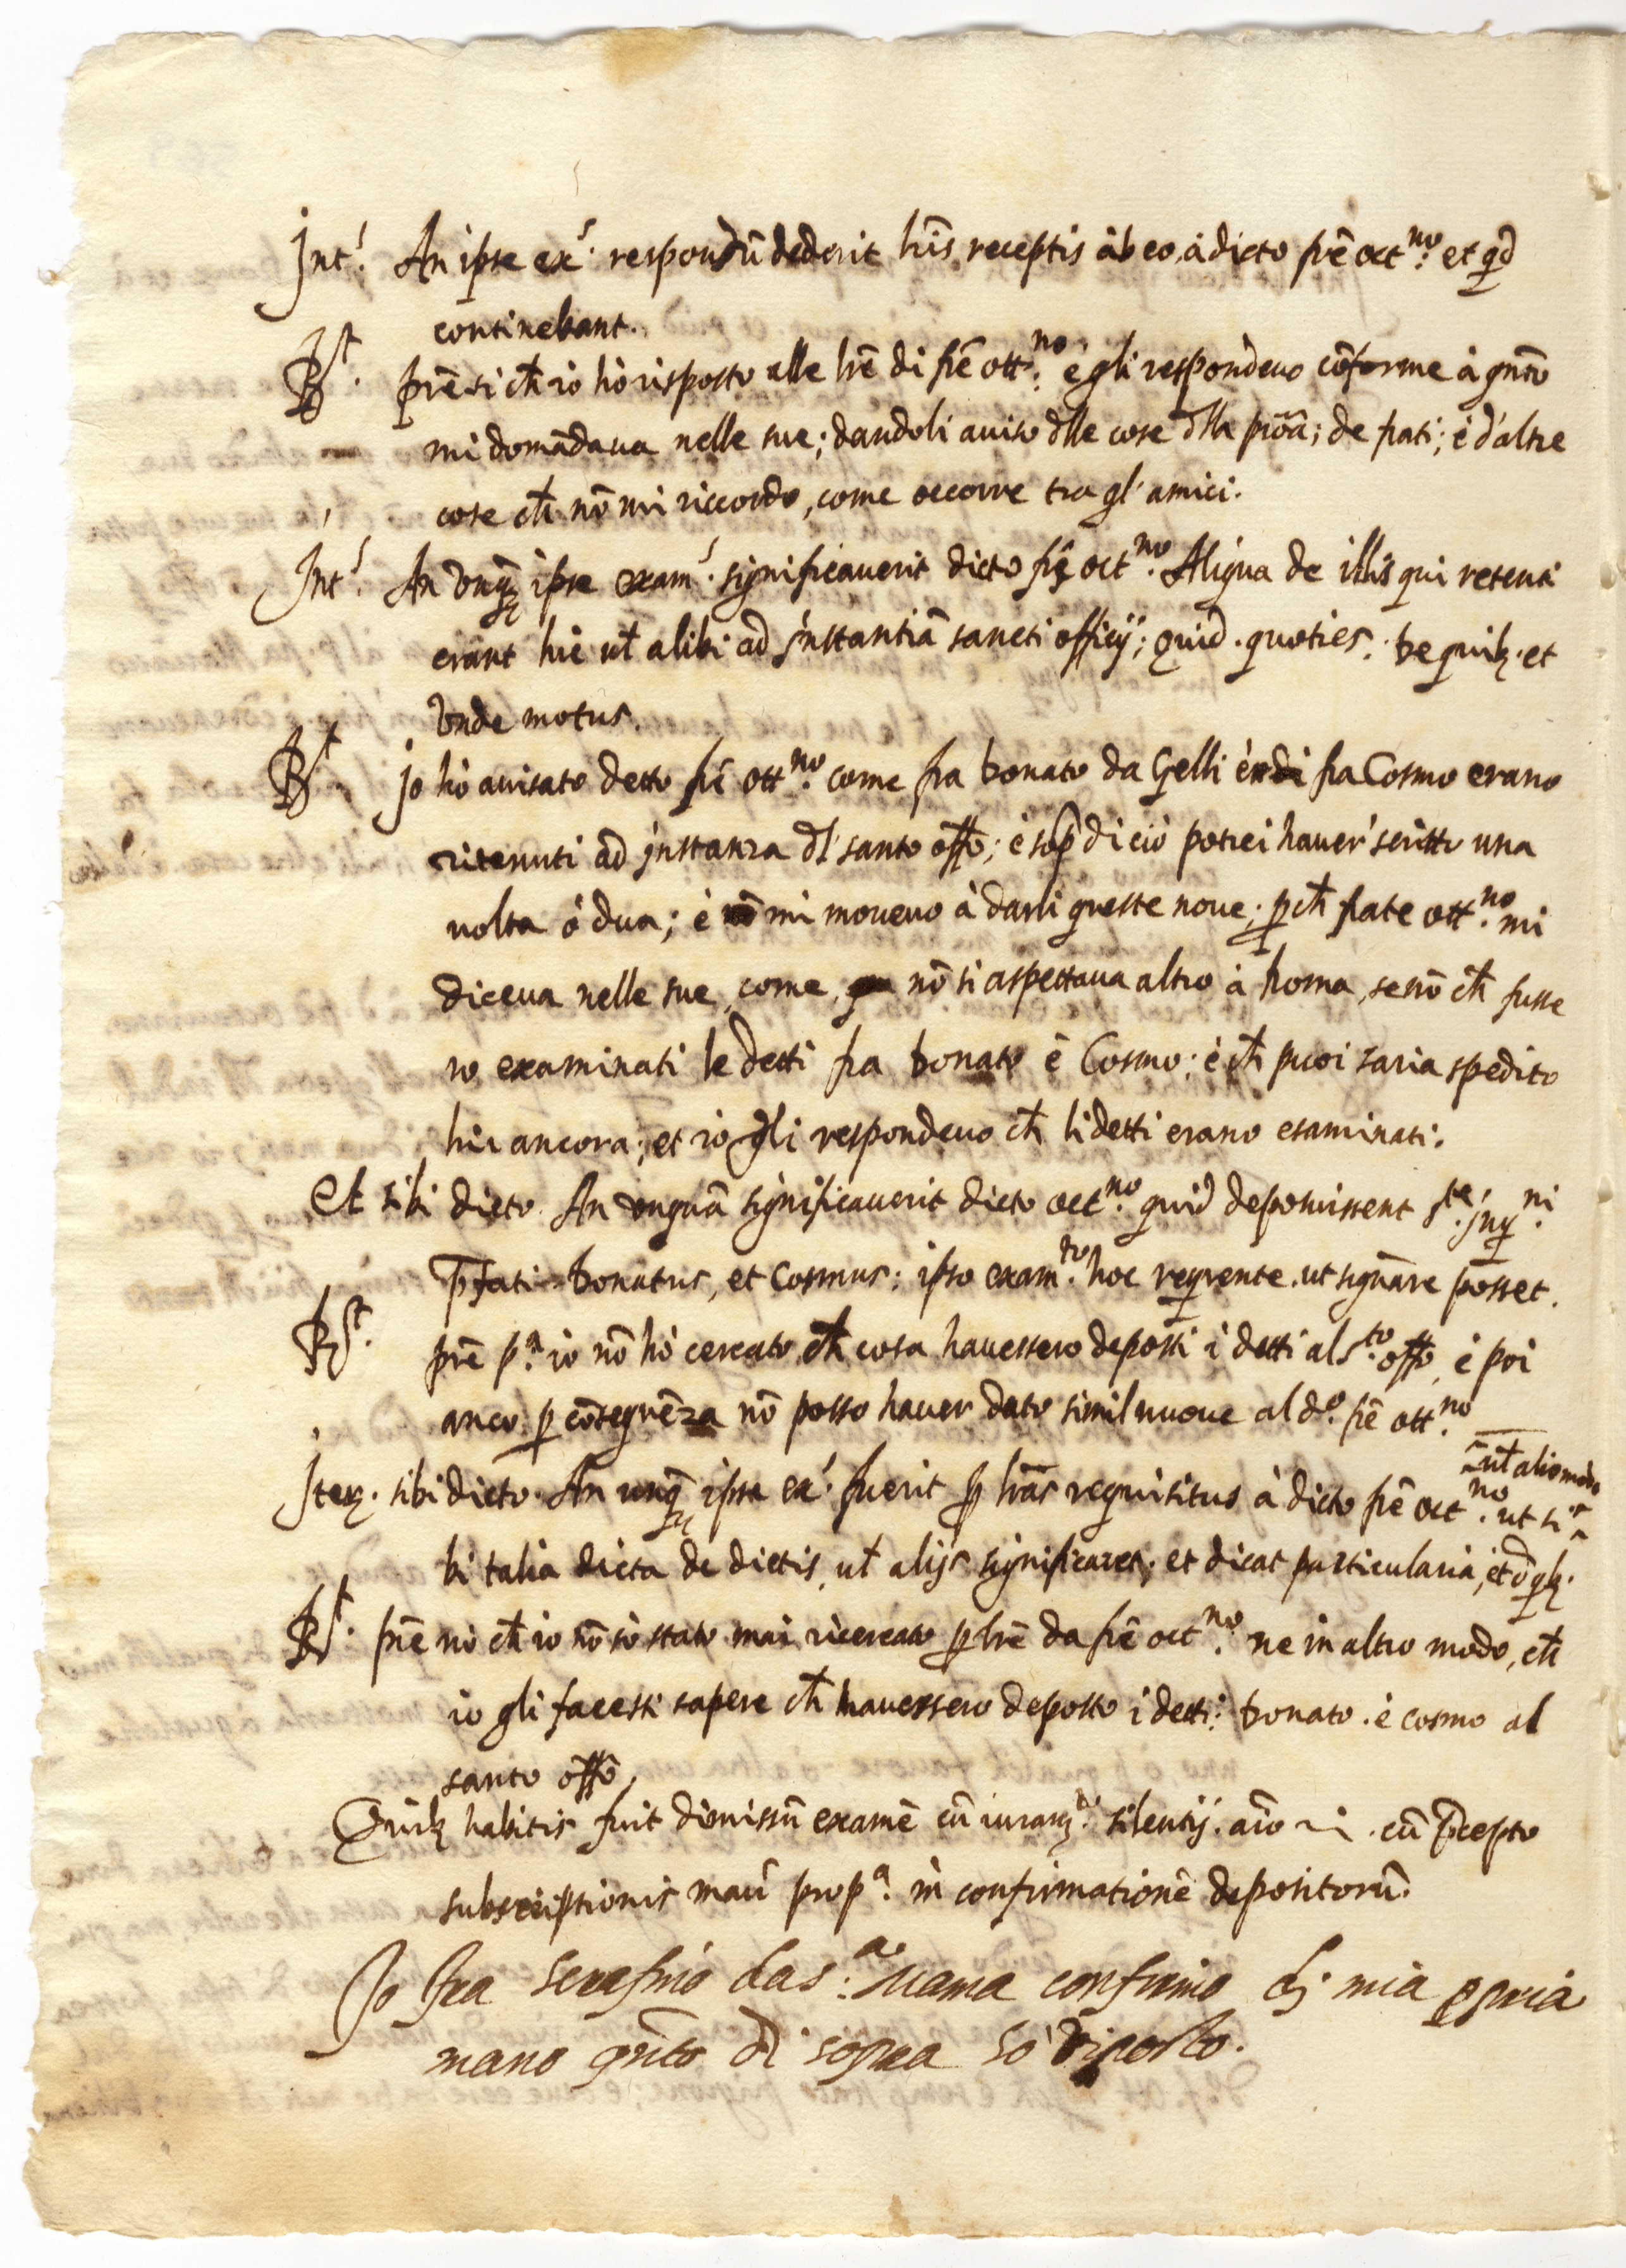 Int.ˢ An ipse ex.ˢ responsũ dederit lris̃ receptis ab eo, à dicto frẽ oct.ⁿᵒ et qd̃
continebant.
R.ᵗ prẽ si ch̃ io hò risposto alle lrẽ di frẽ ott.ⁿᵒ è gli respondeuo cõforme à qnto
mi domãdaua nelle sue; dandoli auiso dlle cose dlla proã; de frati; è d'altre
cose ch̃ nõ mi riccordo, come occorre tra gl'amici.
Int.ˢ An vnq̃ ipse exam.ˢ significauerit dicto frĩ oct.ⁿᵒ Aliqua de illis qui retenti
erant hic ul̃ alibi ad instantiã sancti officij; quid. quoties. de quib.⁹ et
vnde motus.
R.ᵗ Io hò auisato detto frẽ ott.ⁿᵒ come fra Donato da Gelli è fra Cosmo erano
ritenuti ad instanza dl' santo offõ; è sop̃ di ciò potrei hauer' scritto una
uolta ò dua; è mi moueuo à darli queste noue; p̃ch̃ frate ott.ⁿᵒ mi
diceua nelle sue, come nõ si aspettaua altro à Roma, se nõ ch̃ fusse
ro examinati le detti fra Donato è Cosmo; è ch̃ puoi saria spedito
lui ancora; et io gli respondeuo ch̃ li detti erano esaminati.
Et sibi dicto. An vnquã significauerit dicto oct.ⁿᵒ quid deposuissent s.ᵗᵉ Inq.ⁿⁱ
p̃fati Donatus, et Cosmus: ipso exam.ᵗᵒ hoc reqrente. ut signãre posset.
R.ᵗ prẽ p.ᵃ io nõ hò cercato ch̃ cosa hauessero deposti i detti al s.ᵗᵒ offõ, è poi
anco p̃ cõseqrẽza nõ posso hauer dato simil nuoue al d.ᵒ frẽ ott.ⁿᵒ
ul̃ alio modo
Iterȝ. sibi dicto. An unq̃ ipse ex.ˢ fuerit p̃ lrãs requisitus à dicto frẽ oct.ⁿᵒ ut si
bi talia dicta de dictis, ul̃ alijs significaret; et dicat particularia, et d qb.⁹
R.ᵗ prẽ nò ch̃ io nõ sò stato mai ricercato p̃ lrẽ da frẽ oct.ⁿᵒ ne in altro modo, ch̃
io gli facessi sapere ch̃ hauessero deposto i detti: Donato. è cosmo al
santo offõ.
Quib.⁹ habitis fuit dimissũ examẽ cũ iuram.ᵗᵒ silentij. cũ p̃cepto
subscriptionis manũ prop.ᵃ in confirmationẽ depositorũ.
Io fra serafino da s.ᵃ maria confirmo di mia ppria
mano qnto di sopra sò diposto.